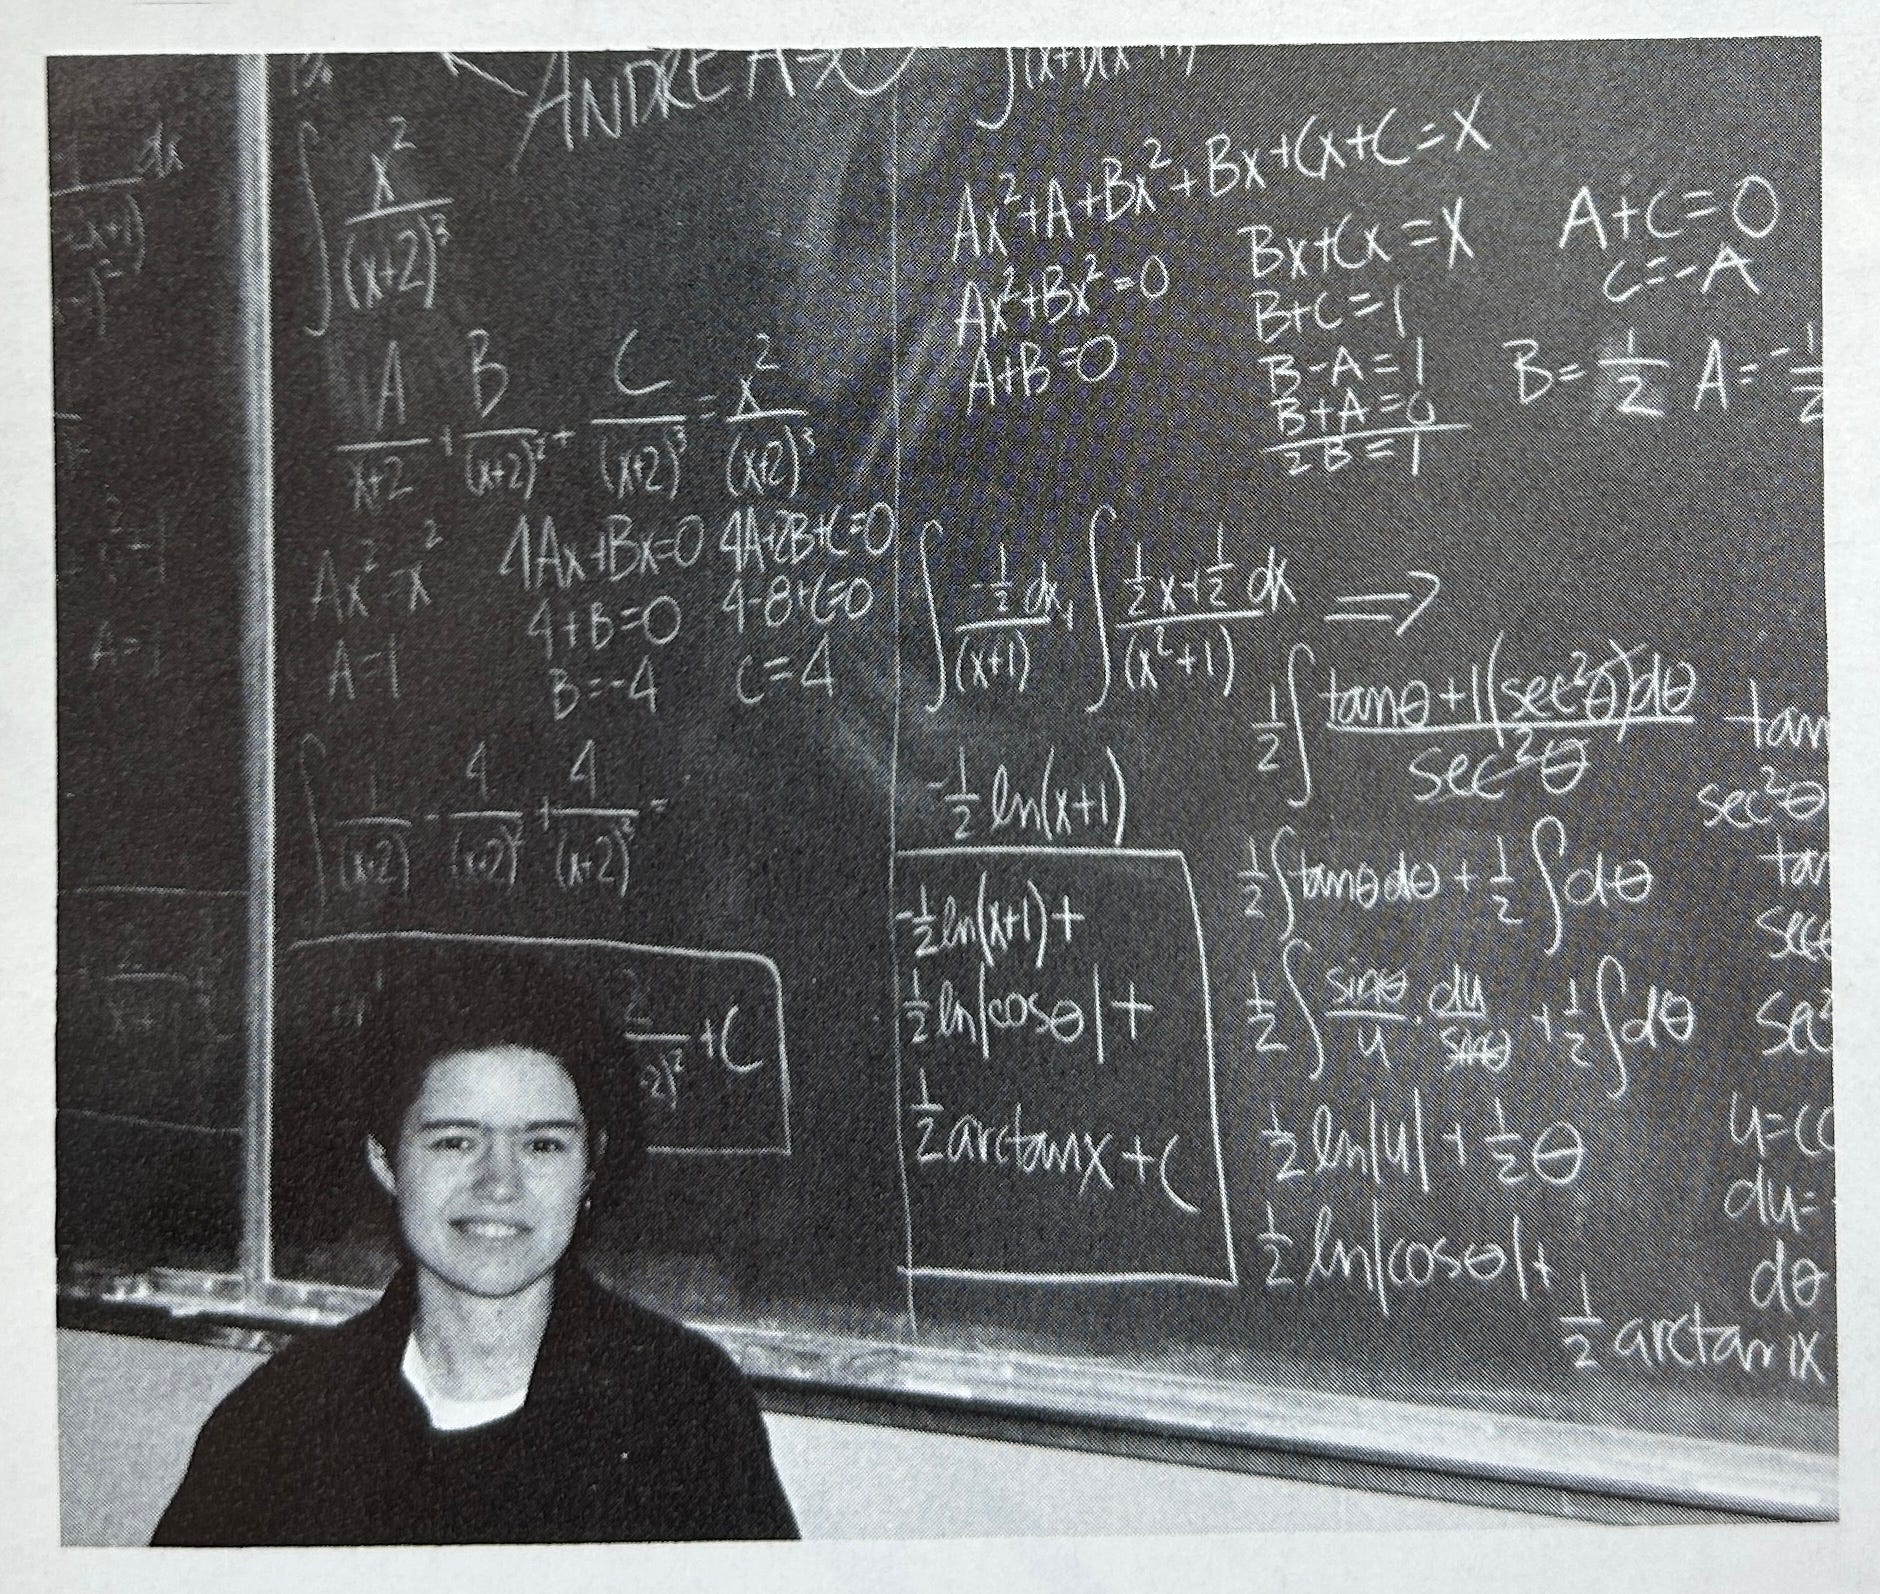 ANDREA
∫ x²/(x+2)³
A/(x+2) + B/(x+2)² + C/(x+2)³ = x²/(x+2)³
Ax²=x² 4Ax+Bx=0 4A+2B+C=0
A=1 4+B=0 4-8+C=0
B=-4 C=4
∫ 1/(x+2) - 4/(x+2)² + 4/(x+2)³ =
+C
Ax²+A+Bx²+Bx+Cx+C=X
Ax²+Bx²=0
A+B=0
Bx+Cx=X
B+C=1
B-A=1
B+A=0
2B=1
A+C=0
C=-A
B=1/2 A=-1/2
∫ -1/2 dx/(x+1) + ∫ 1/2x+1/2 dx/(x²+1) ⇒
-1/2 ln(x+1)
-1/2 ln(x+1)+
1/2 ln|cosθ|+
1/2 arctanx+C
1/2 ∫ tanθ+1(sec²θ)dθ/sec²θ
1/2 ∫tanθdθ + 1/2 ∫dθ
1/2 ∫ sinθ/u · du/sinθ + 1/2 ∫dθ
1/2 ln|u| + 1/2 θ
1/2 ln|cosθ|+
1/2 arctan x
tan
sec²θ
du=
dθ
A=1